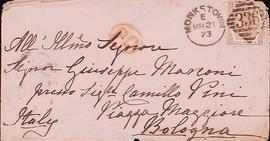 MONKSTOWN
E
MR 21
73
All' Illmo Signore
Signor Giuseppe Marconi
presso Sigr Camillo Pini
Piazza Maggiore
Italy
Bologna